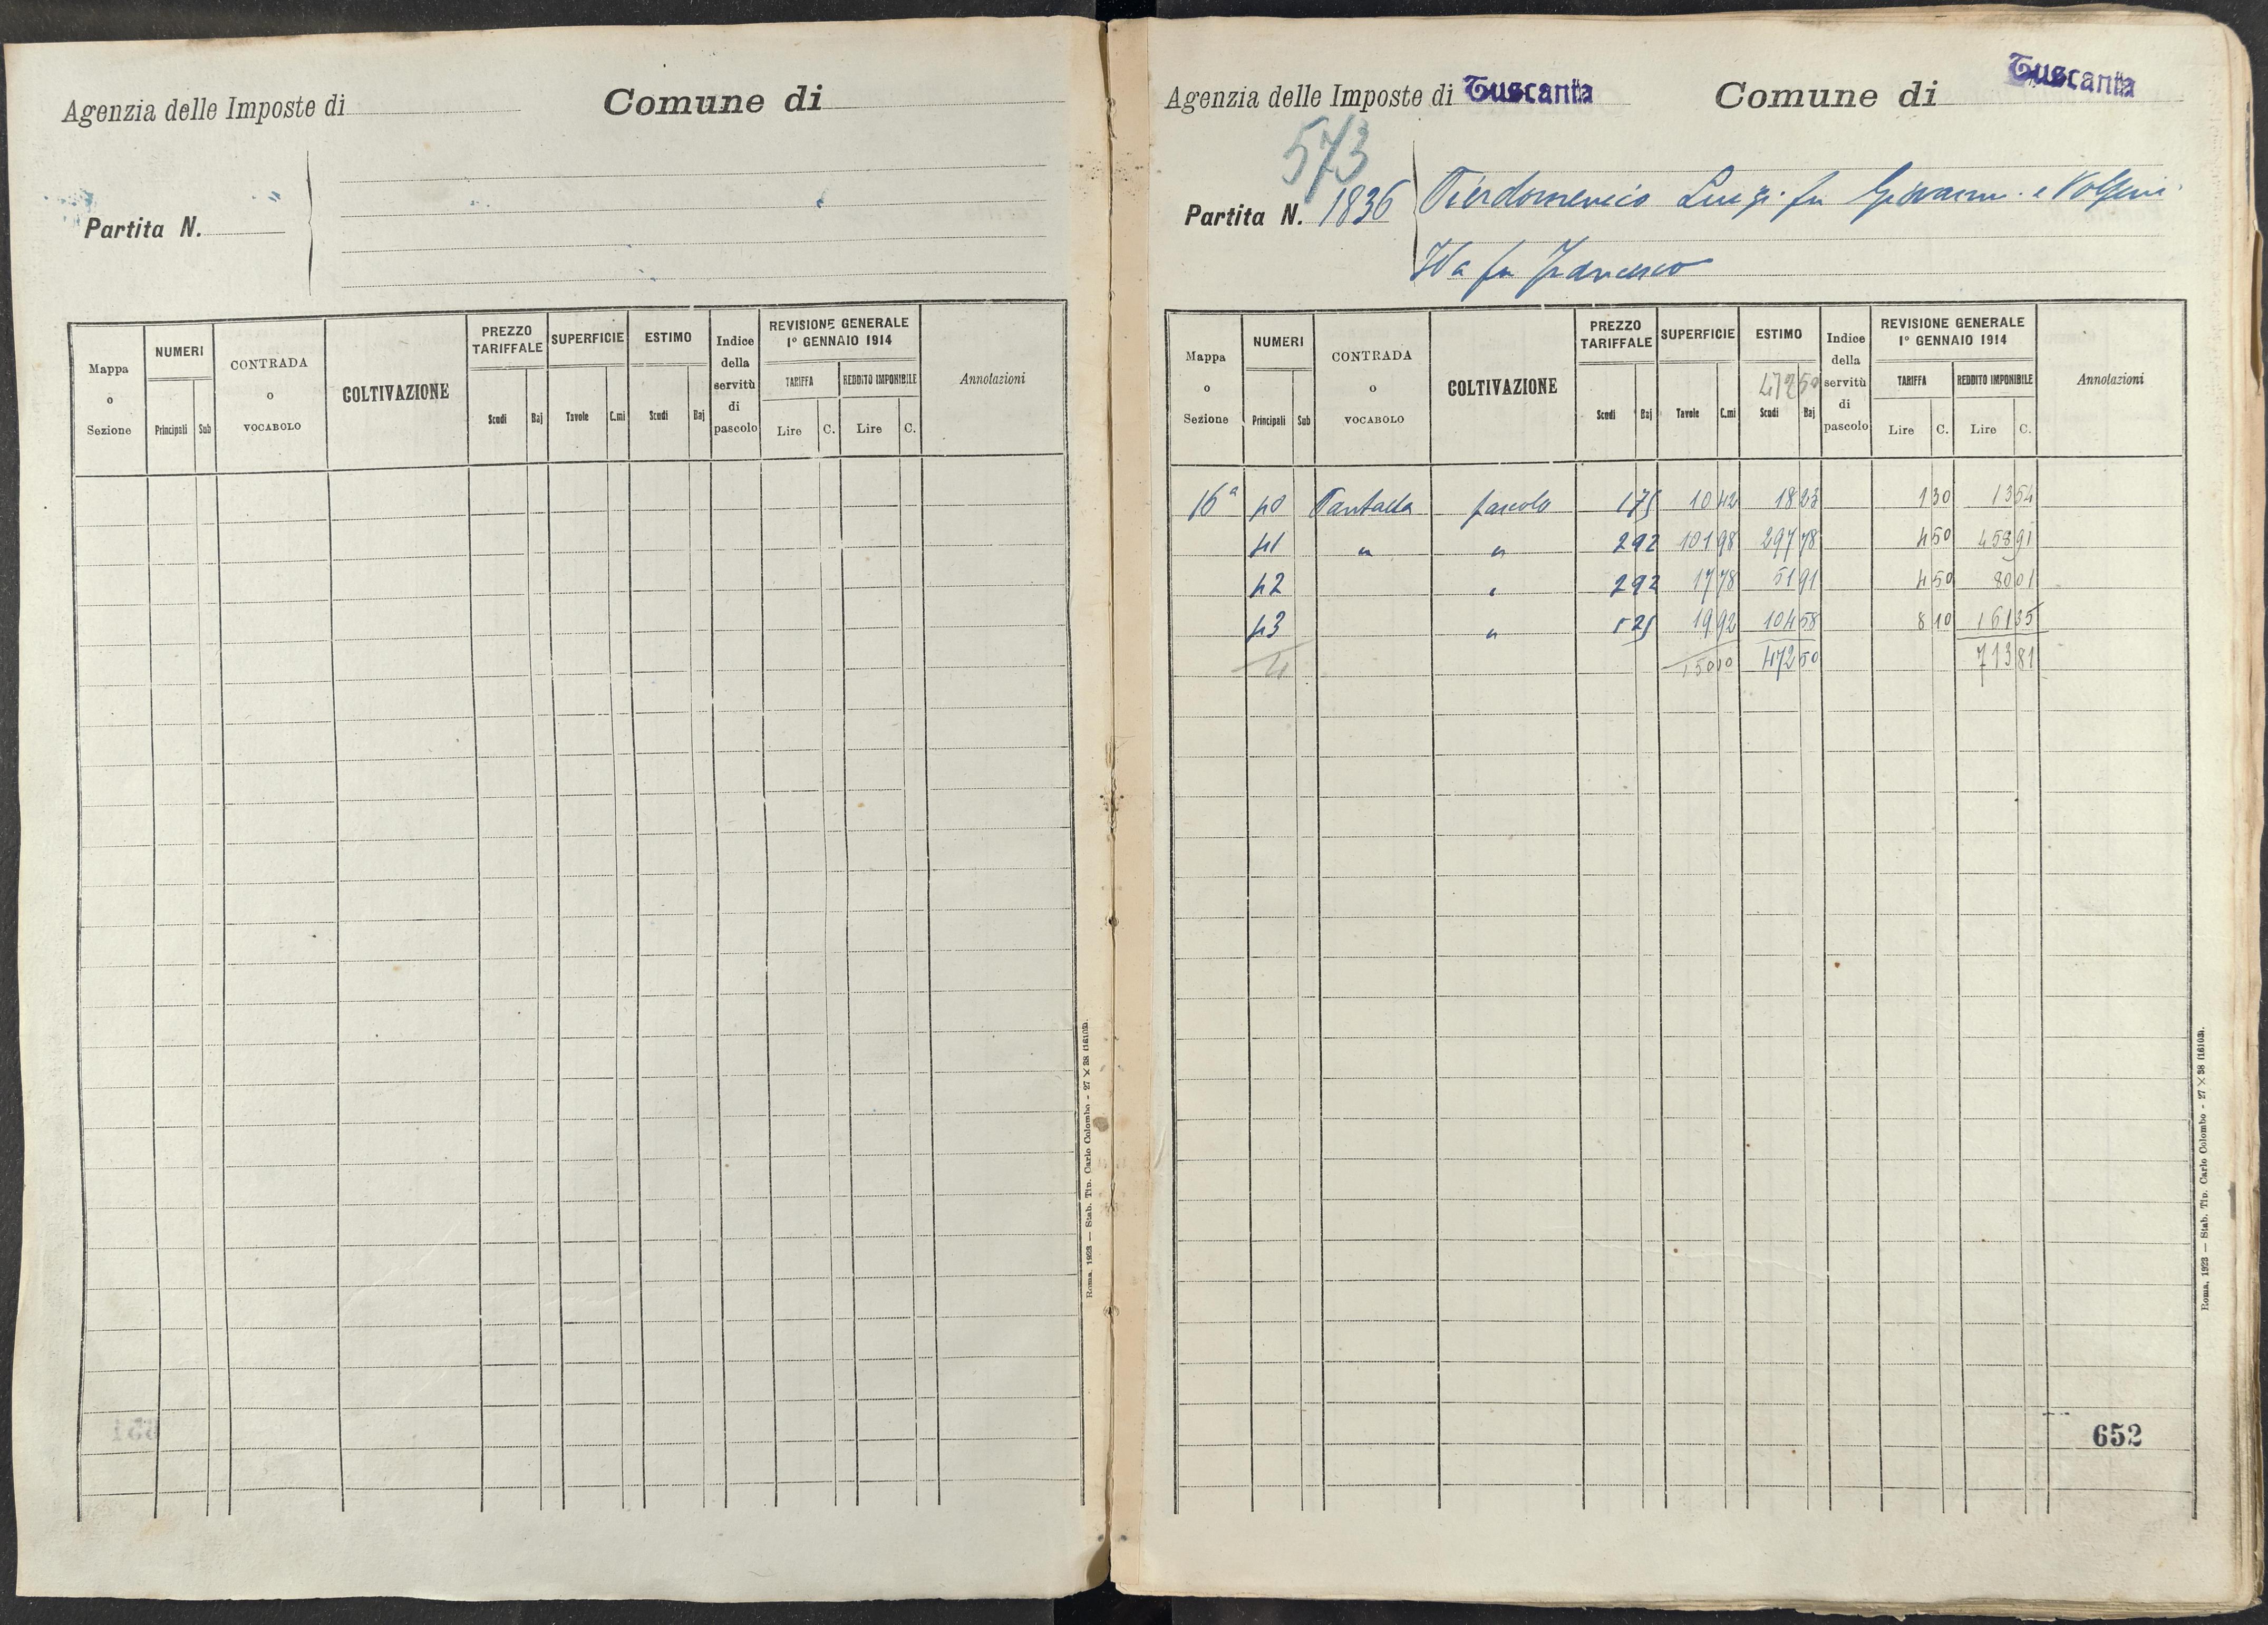 Agenzia delle Imposte di
Comune di
Partita N.
Mappa o Sezione
NUMERI
Principali Sub
CONTRADA o VOCABOLO
COLTIVAZIONE
PREZZO TARIFFALE
Scudi Baj
SUPERFICIE
Tavole C.mi
ESTIMO
Scudi Baj
Indice della servitù di pascolo
REVISIONE GENERALE
1° GENNAIO 1914
TARIFFA
Lire C.
REDDITO IMPONIBILE
Lire C.
Annotazioni
Roma, 1923 — Stab. Tip. Carlo Colombo - 27 × 38 (16103).
Agenzia delle Imposte di Tuscania
Comune di Tuscania
573
Partita N. 1836
Pierdomenico Luigi fu Giovanni e Volpini
Ida fu Francesco
Mappa o Sezione
NUMERI
Principali Sub
CONTRADA o VOCABOLO
COLTIVAZIONE
PREZZO TARIFFALE
Scudi Baj
SUPERFICIE
Tavole C.mi
ESTIMO
472 50
Scudi Baj
Indice della servitù di pascolo
REVISIONE GENERALE
1° GENNAIO 1914
TARIFFA
Lire C.
REDDITO IMPONIBILE
Lire C.
Annotazioni
16ª 40 Pantalla pascolo 1 75 10 42 18 23 1 30 13 54
41 " " 2 92 101 98 297 78 4 50 458 91
42 " 2 92 17 78 51 91 4 50 80 01
43 " 5 25 19 92 104 58 8 10 161 35
4 150 10 472 50 713 81
652
Roma, 1923 — Stab. Tip. Carlo Colombo - 27 × 38 (16103).